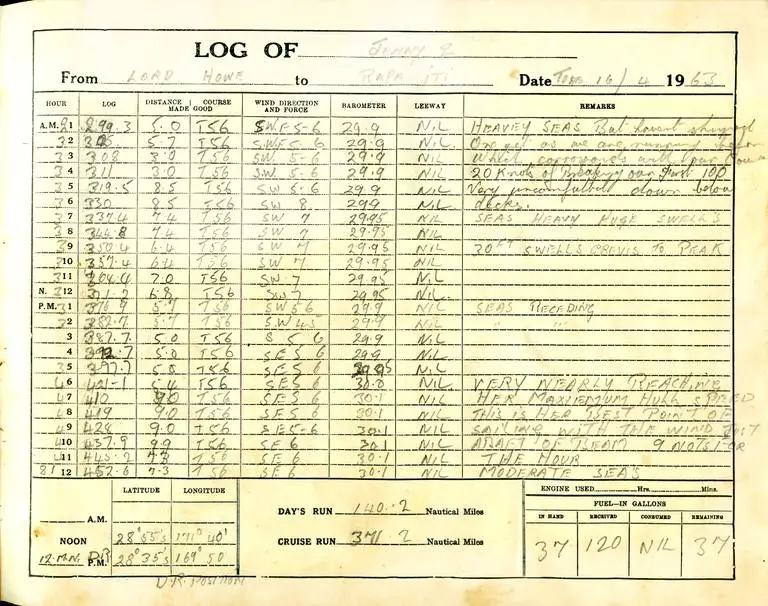 LOG OF Jenny 2
From LORD HOWE to RAPA ITI Date TUES 16/4 1963
HOUR LOG DISTANCE MADE GOOD COURSE WIND DIRECTION AND FORCE BAROMETER LEEWAY REMARKS
A.M. 1 299.3 5.0 T56 SWF 5-6 29.9 NIL HEAVEY SEAS But havent shipped
2 305 5.7 T56 SWF 5-6 29.9 NIL. One yet as we are running before
3 308 3.0 T56 SW. 5-6 29.9 NIL which corresponds with our
4 311 3.0 T56 SW. 5-6 29.9 NIL 20 Knots of Breaking our First 100
5 319.5 8.5 T56 SW 5-6 29.9 NIL Very uncomfortable down below
6 330 8.5 T56 SW 8. 299 NIL decks.
7 337.4 7.4 T56 SW 7 29.95 NIL SEAS HEAVY HUGE SWELL'S
8 344.8 7.4 T56 SW 7 29.95 NIL
9 350.4 6.4 T56 SW 7 29.95 NIL 30FT SWELLS CREVIS TO PEAK
10 357.4 6.4 T56 SW 7 29.95 NIL
11 364.4 7.0 T56 SW 7 29.95 NIL
N. 12 371.2 6.8 T56 SW 7 29.95 NIL
P.M. 1 376.9 5.7 T56 SW 5 6 29.9 NIL SEAS RECEDING
2 382.7 5.7 T56 SW 45 29.9 NIL " "
3 387.7 5.0 T56 S 5 6 29.9 NIL
4 392.7 5.0 T56 SE 5 6 29.9 NIL
5 397.7 5.0 T56 SE 5 6 29.95 NIL
6 401-1 5.4 T56 SE 5 6 30.0 NIL VERY NEARLY REACHING
7 410 9.0 T56 SE 5 6 30.1 NIL HER MAXIEMUM HULL SPEED
8 419 9.0 T56 SE 5 6 30.1 NIL THIS IS HER BEST POINT OF
9 428 9.0 T56 SE 5-6 30.1 NIL SAILING WITH THE WIND JUST
10 437.9 9.9 T56 SE 6 30.1 NIL ABAFT OF BEAM 9 NOTS FOR
11 445.2 7.3 T56 SE 6 30.1 NIL THE HOUR
12 452.6 7.3 T56 SE 6 30.1 NIL MODERATE SEAS
LATITUDE LONGITUDE
A.M.
NOON 28° 55's 171° 40'
12 M.N. DR P.M. 28° 35's 169° 50
D.R. POSITION
DAY'S RUN 140.2 Nautical Miles
CRUISE RUN 371.2 Nautical Miles
ENGINE USED Hrs. Mins.
FUEL—IN GALLONS
IN HAND RECEIVED CONSUMED REMAINING
37 120 NIL 37